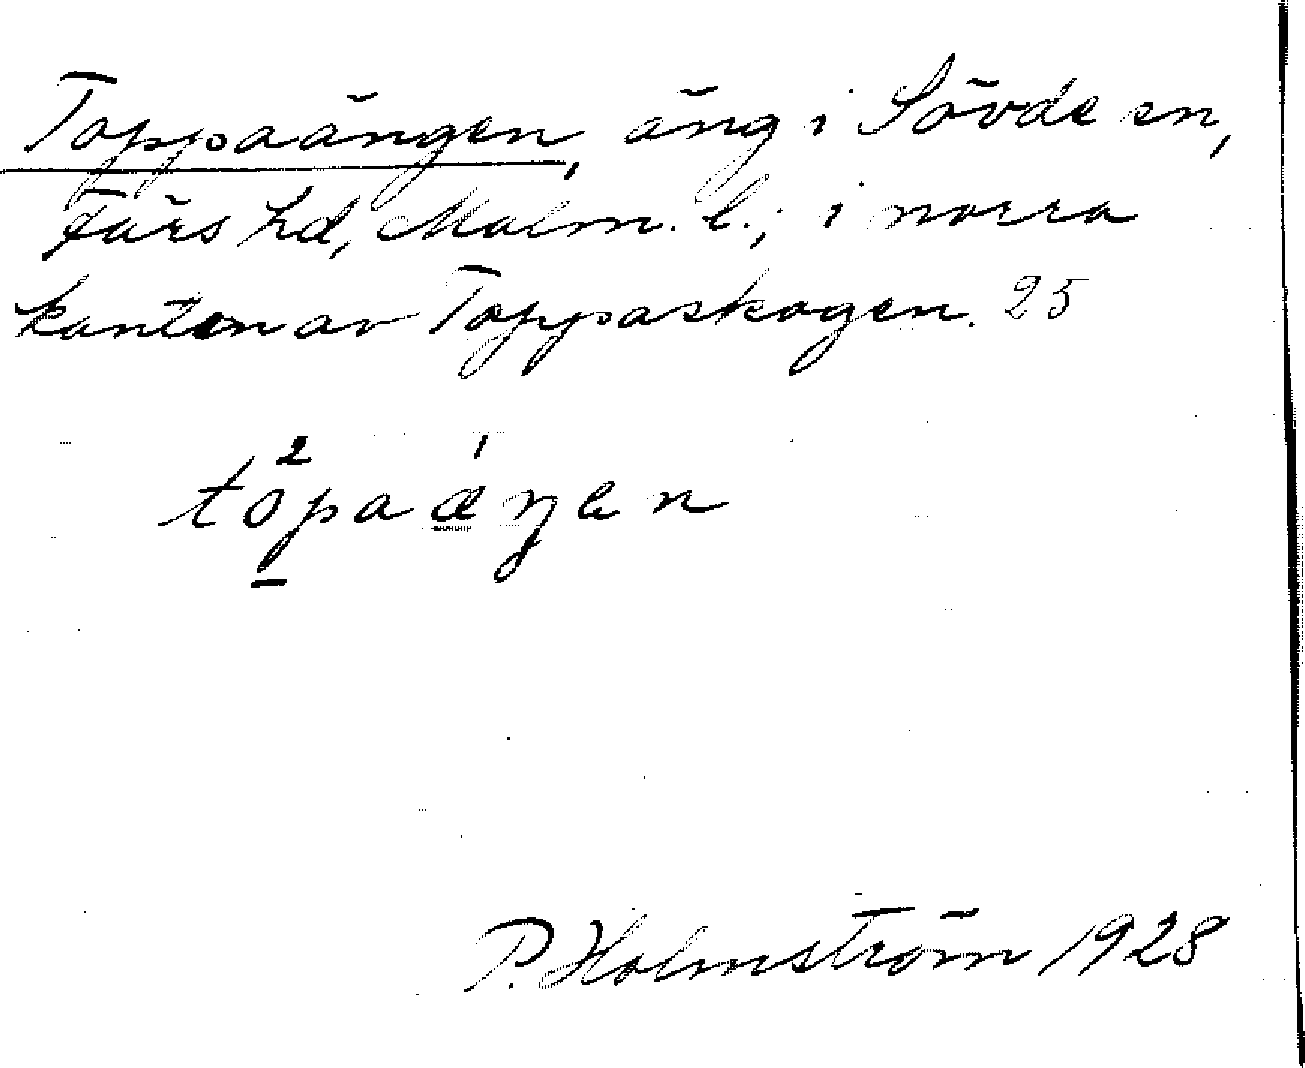 Toppaängen, äng i Sövde sn,
Färs hd, Malm. l.; i norra
kanten av Toppaskogen. 25
2 1
töpaæŋen
P. Holmström 1928